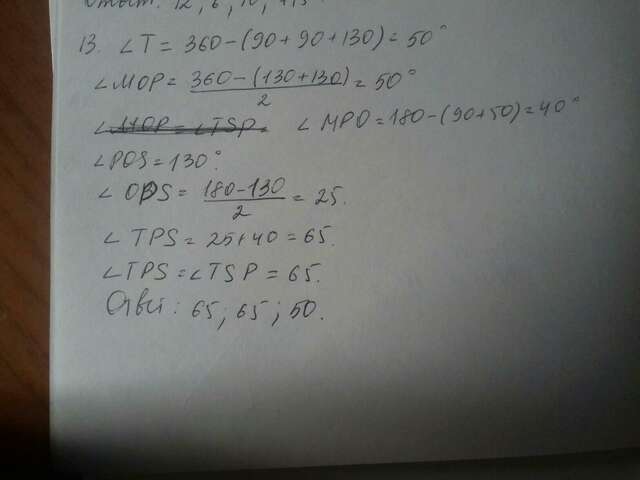 Ответ: 12, 6, 10,
13. ∠T = 360-(90+90+130)=50°
∠MOP= 360-(130+130)/2 =50°
∠MOP=∠TSP. ∠MPO=180-(90+50)=40°
∠POS=130°.
∠OPS= 180-130/2 = 25.
∠TPS=25+40=65.
∠TPS=∠TSP=65.
Ответ: 65; 65; 50.